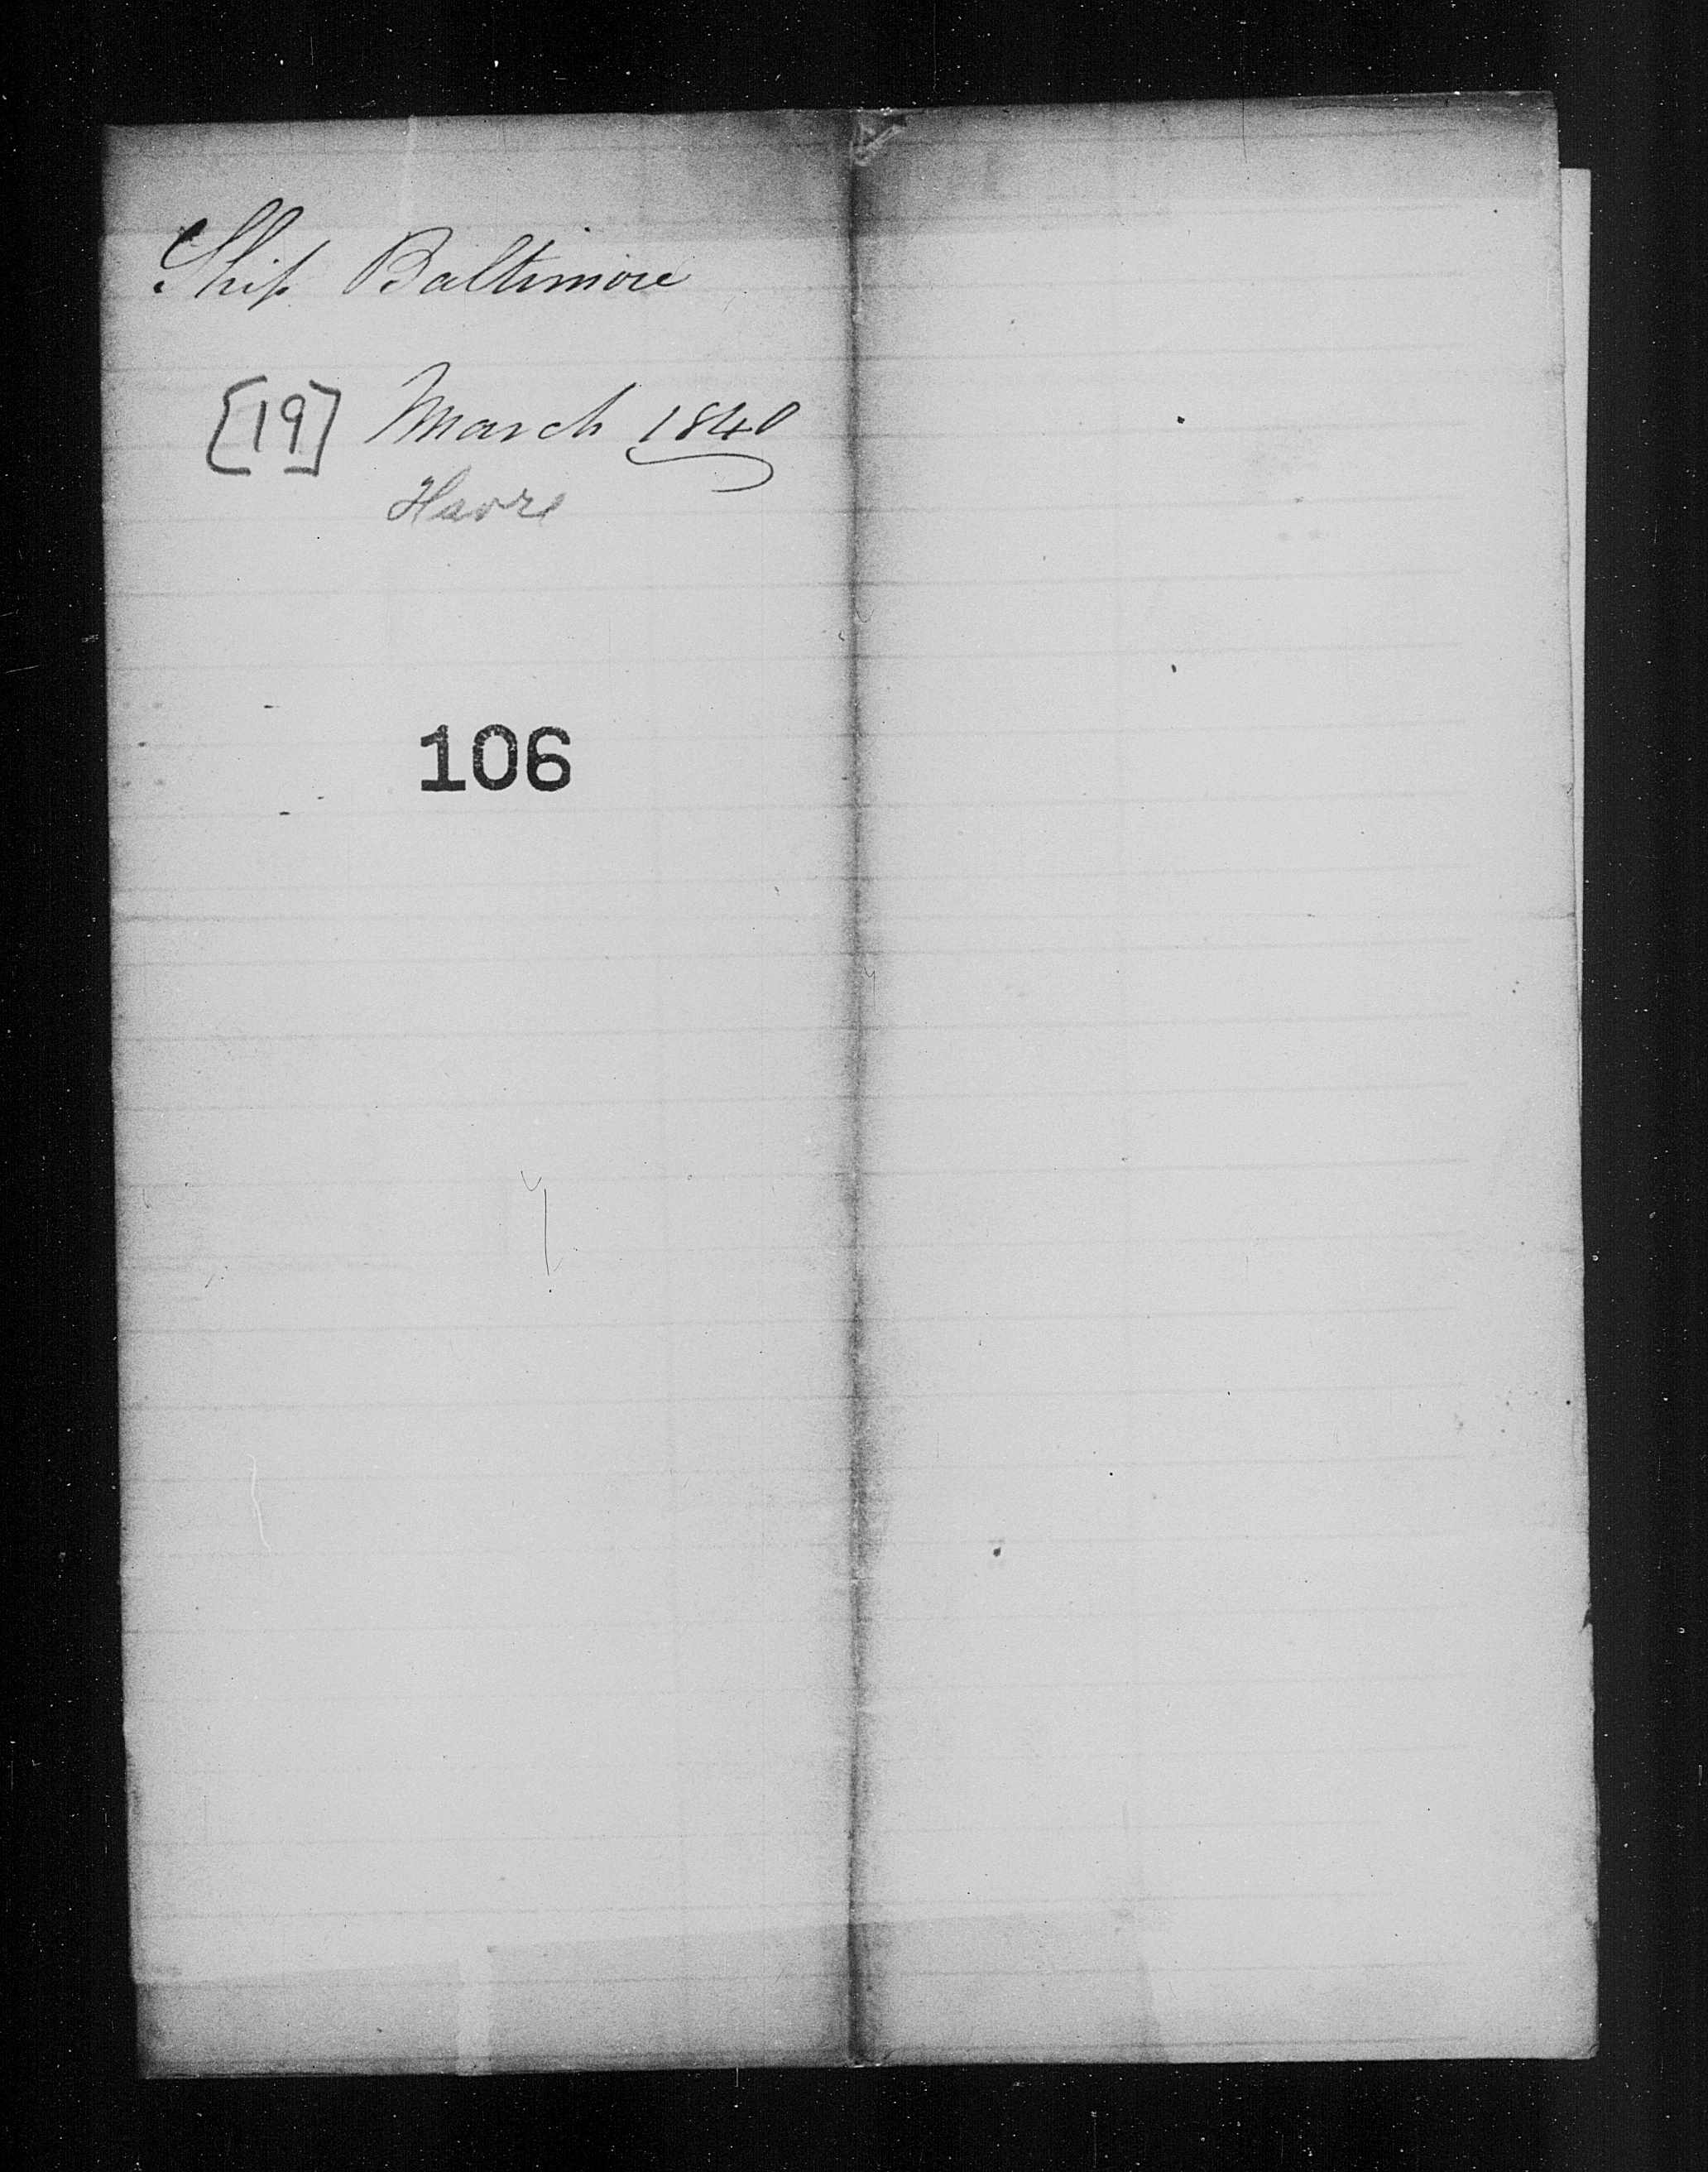 Ship Baltimore
[19] March 1840
Havre
106